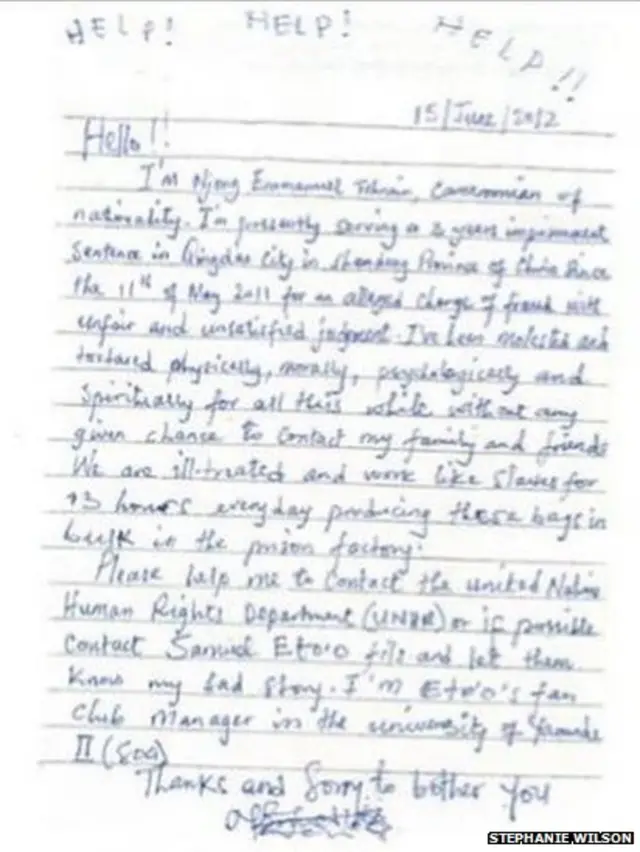 HELP! HELP! HELP!!
15/June/2012
Hello!!
I'm Njong Emmanuel Tohnain, Cameroonian of
nationality. I'm presently serving a 3 years imprisonment
Sentence in Qingdao City in Shandong Province of China Since
the 11th of May 2011 for an alleged charge of fraud with
unfair and unsatisfied judgment. I've been molested and
tortured physically, morally, psychologically and
Spiritually for all this while without any
given chance to contact my family and friends
We are ill-treated and work like slaves for
13 hours everyday producing these bags in
bulk in the prison factory.
Please help me to contact the united Nations
Human Rights Department (UNHR) or if possible
contact Samuel Eto'o fils and let them
know my bad story. I'm Eto'o's fan
club manager in the university of Yaounde
II (Soa)
Thanks and Sorry to bother you
STEPHANIE WILSON